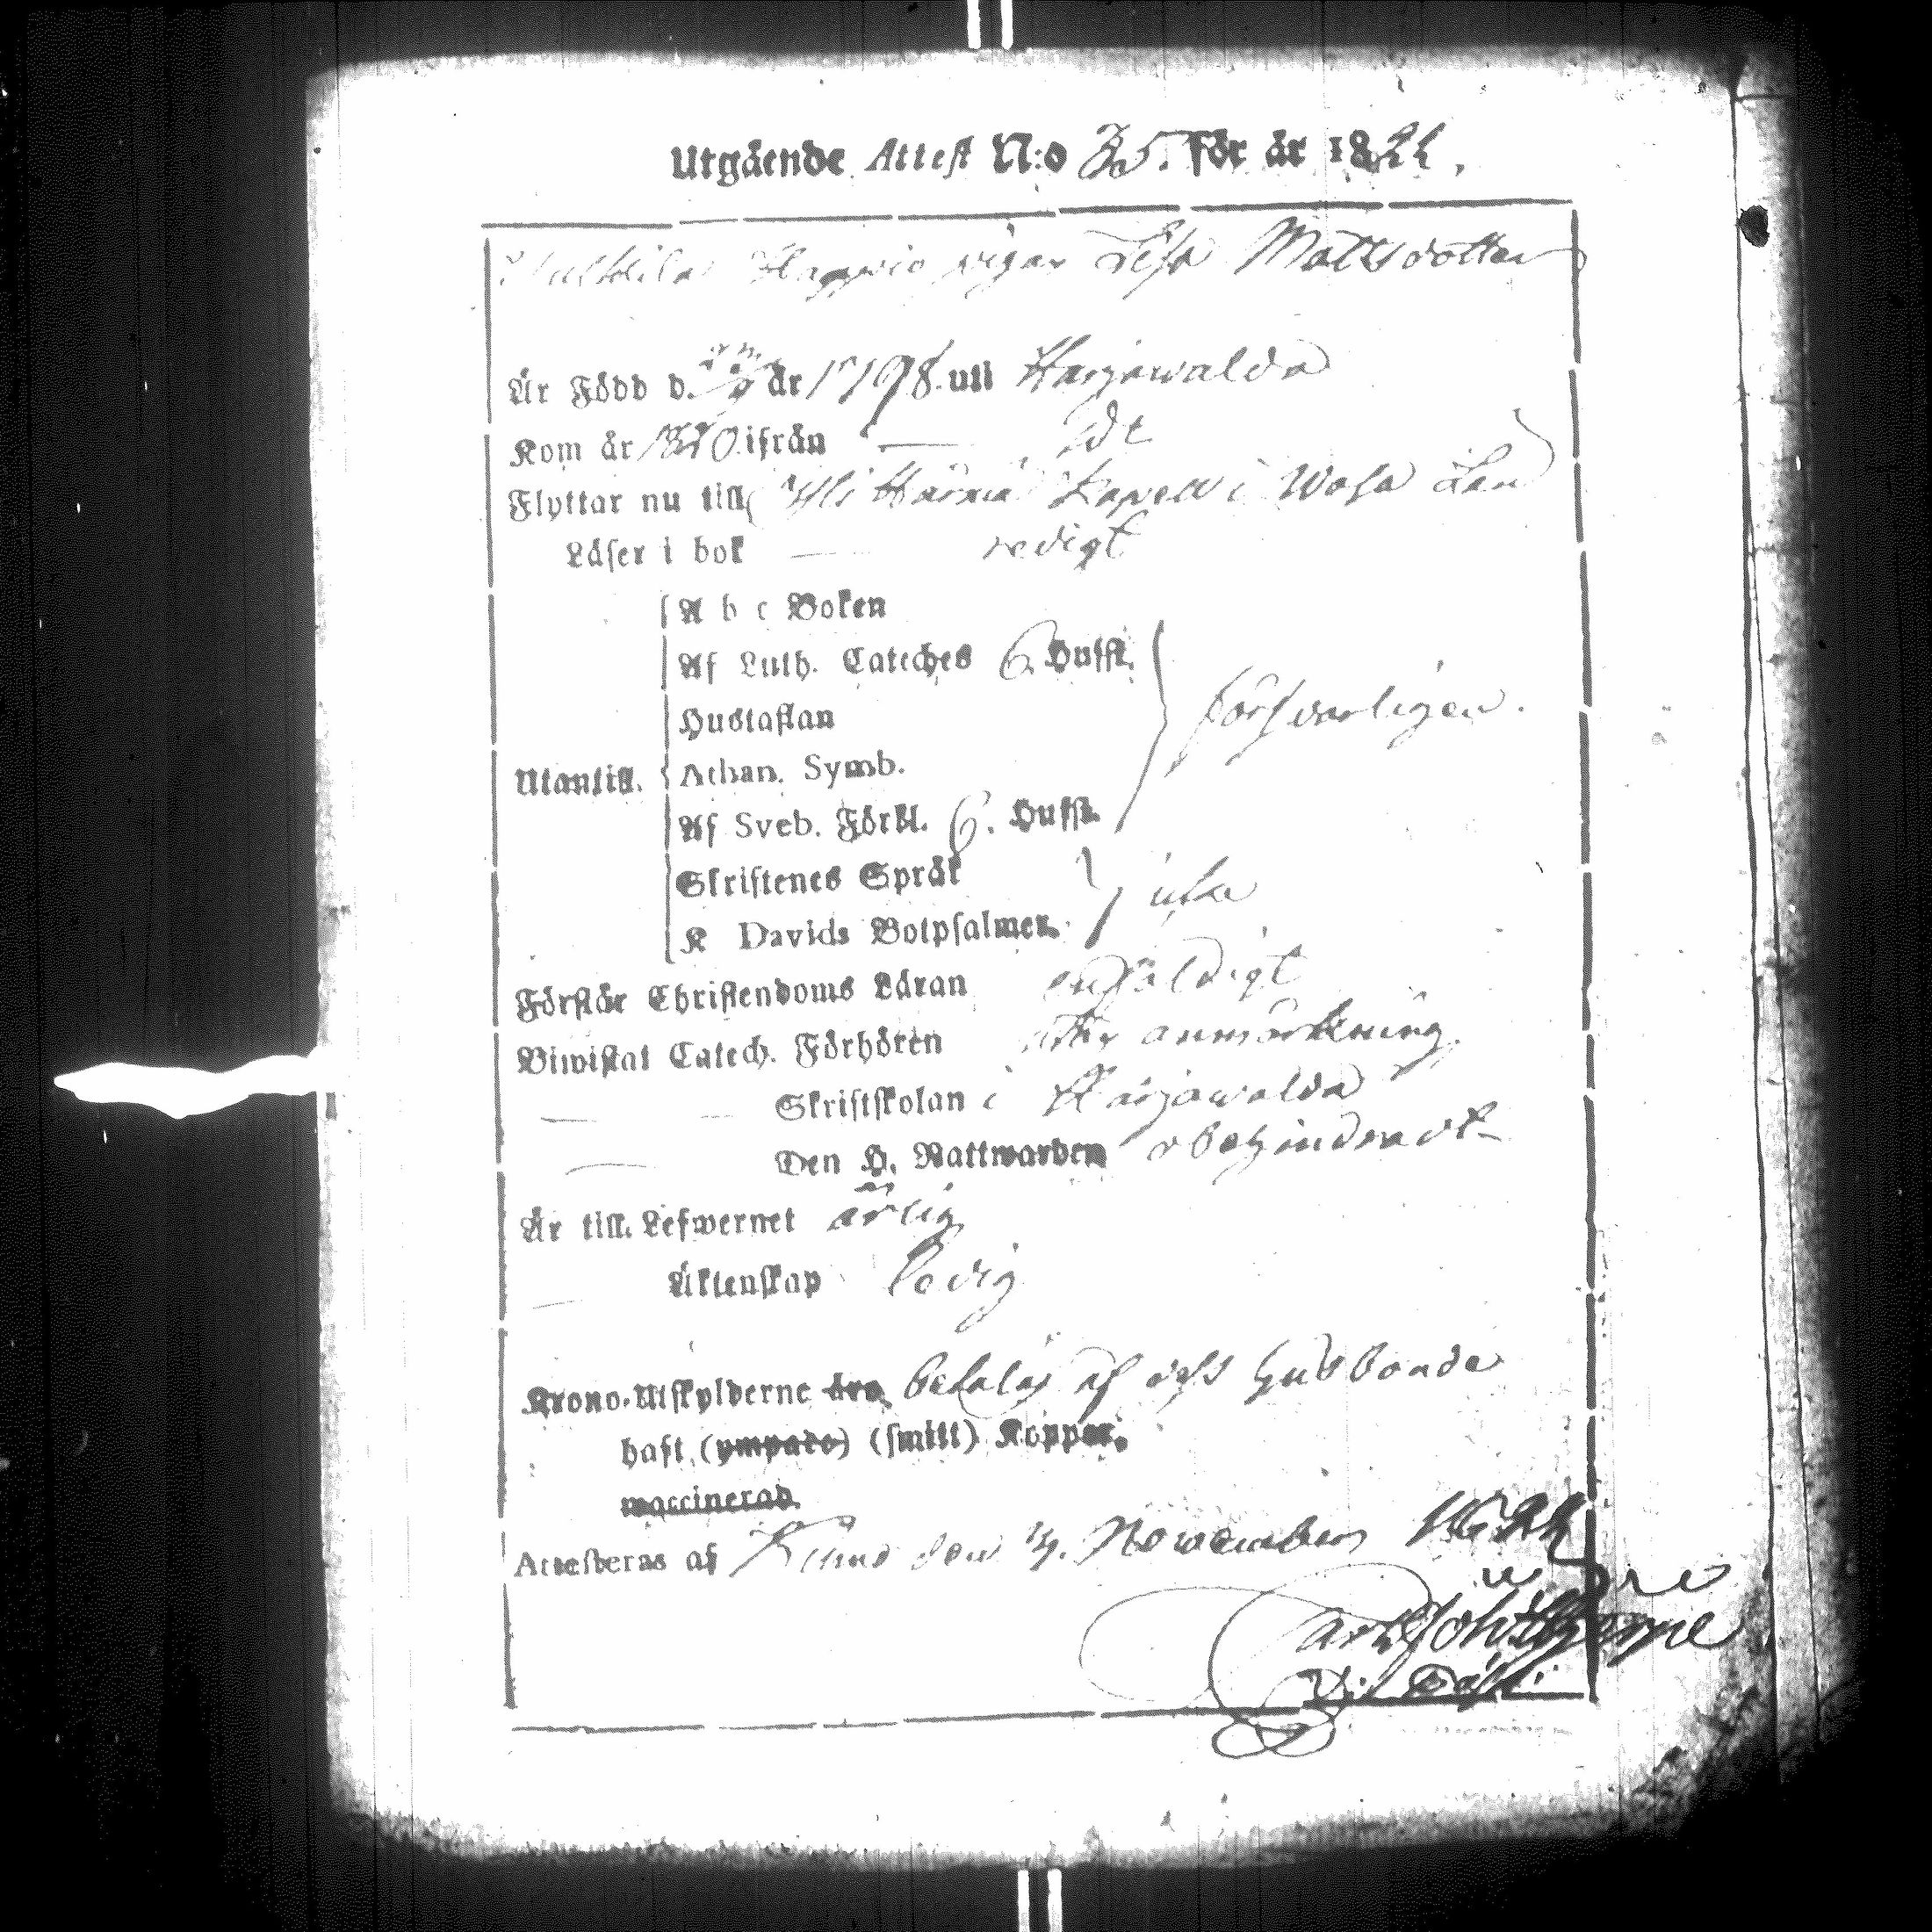 Utgående Attest N:o 35. För år 1822.
pigan Lisa Mattsdotter
Är Född d. år 1798. uti Harjawalda
Kom år 1820 ifrån — dt
Flyttar nu till Kapell i Wasa Län
Läser i bok — redigt
A b c Boken
Af Luth. Cateches 6. Hufst.
Hustaflan
försvarligen.
Utantill. Athan. Symb.
Af Sveb. Förkl. 6. Hufst.
Skriftenes Språk
icke
K Davids Botpsalmer.
Förstår Christendoms Läran enfäldigt
Biwistat Catech. Förhören utan anmärkning
— — Skriftskolan i Harjawalda
— Den H. Nattwarden obehindradt
Är till Lefwernet ärlig
— Äktenskap ledig
Krono-Utskylderne äro betalas af dess husbonde
haft (ympade) (smitt) Koppor.
waccinerad.
Attesteras af Kumo den November 1822
Carl Joh